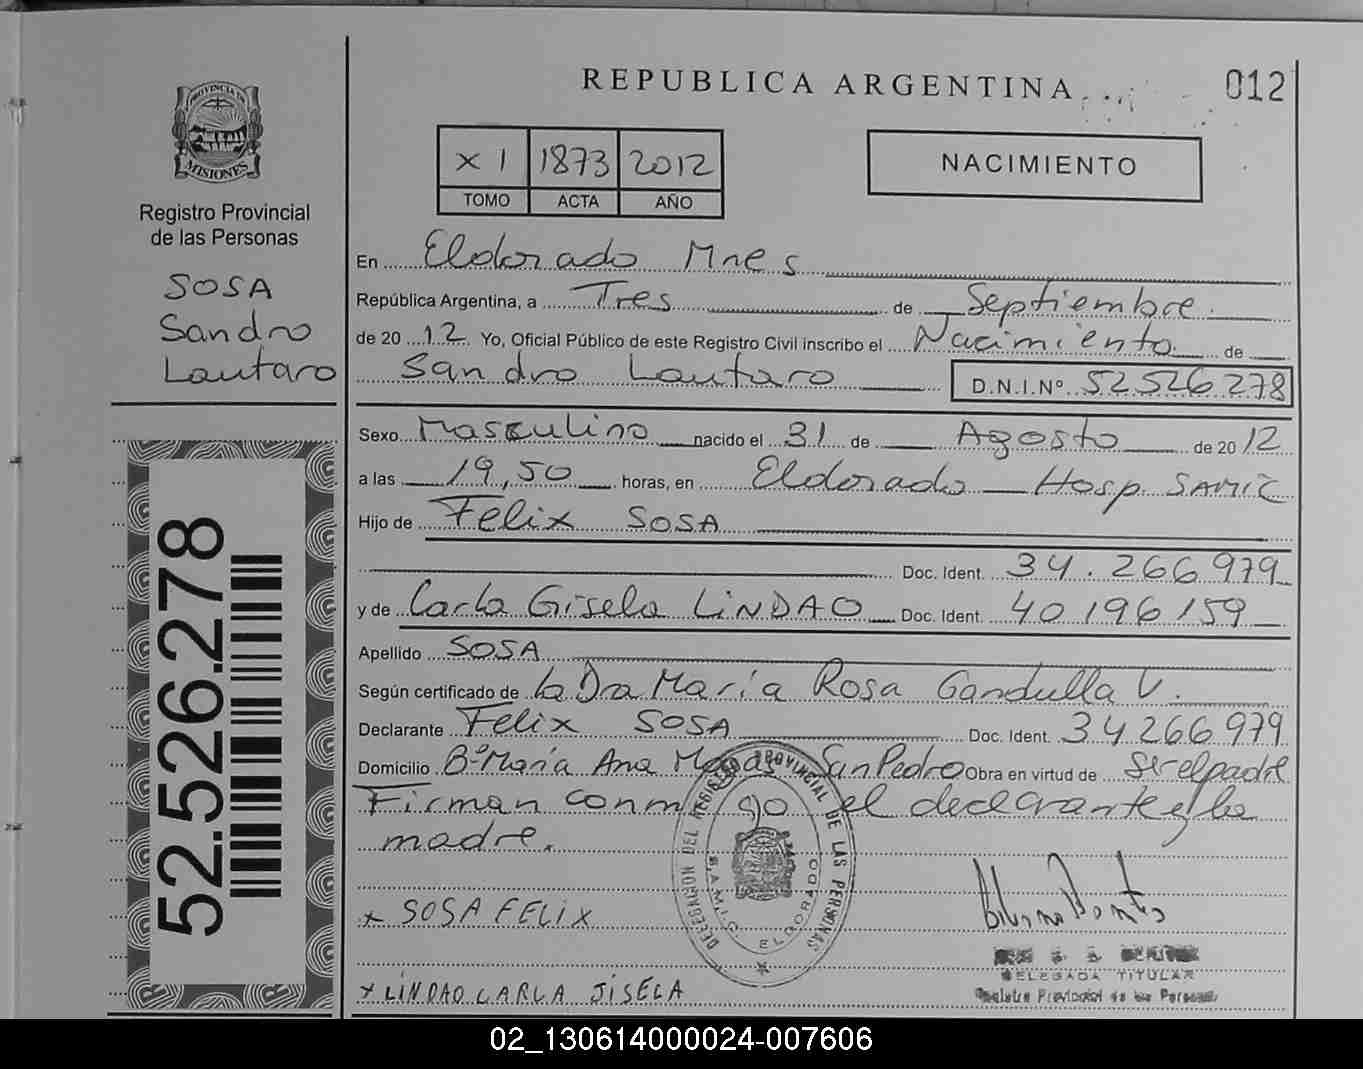 REPUBLICA ARGENTINA
012
PROVINCIA DE
MISIONES
Registro Provincial
de las Personas
SOSA
Sandro
Lautaro
52.526.278
X 1 1873 2012
TOMO ACTA AÑO
NACIMIENTO
En Eldorado Mnes
República Argentina, a Tres de Septiembre
de 20 12 Yo, Oficial Público de este Registro Civil inscribo el Nacimiento de
Sandro Lautaro D.N.I.Nº 52526278
Sexo Masculino nacido el 31 de Agosto de 20 12
a las 19,50 horas, en Eldorado Hosp. SAMIC
Hijo de Felix SOSA
Doc. Ident. 34.266979
y de Carla Gisela LINDAO Doc. Ident. 40196159
Apellido SOSA
Según certificado de la Dra María Rosa Gandulla V.
Declarante Felix SOSA Doc. Ident. 34266979
Domicilio Bº María Ana San Pedro Obra en virtud de Ser el padre
Firman conmigo el declarante y la
madre.
DELEGACION DEL REGISTRO PROVINCIAL DE LAS PERSONAS
S.A.M.I.C. ELDORADO
x SOSA FELIX
x LINDAO CARLA JISELA
DELEGADA TITULAR
Registro Provincial de las Personas
02_130614000024-007606